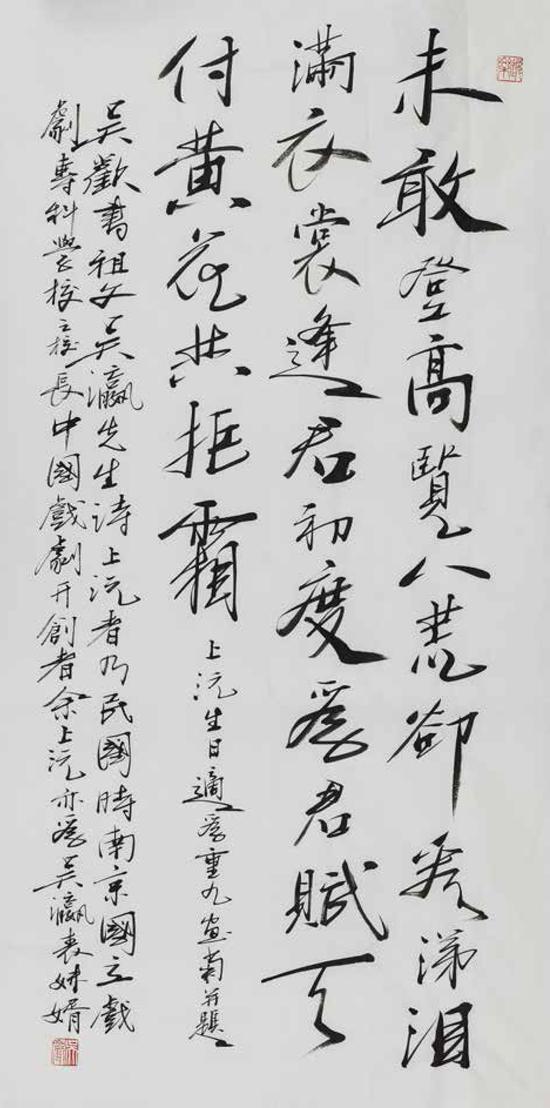 未敢登高覽八荒卻看涕泪
滿衣裳逢君初度爲君賦天
付黃花共拒霜
上沅生日適爲重九畫菊并題
吳歡書祖父吳瀛先生詩上沅者乃民國時南京國立戲
劇專科學校之校長中國戲劇开創者余上沅亦爲吳瀛表妹婿